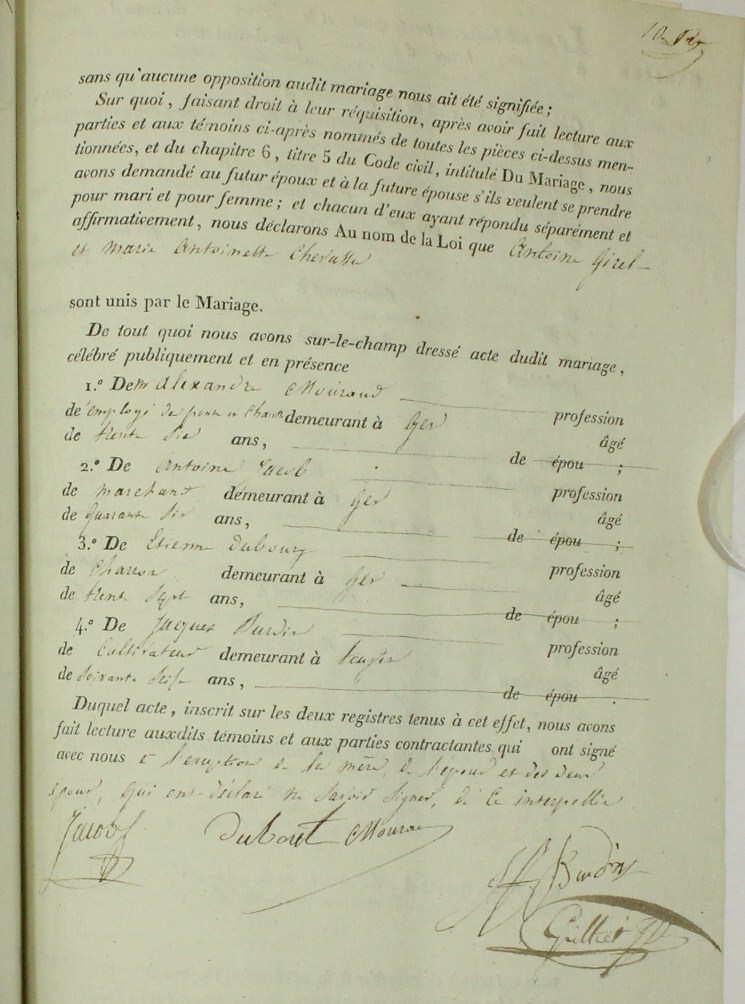 sans qu'aucune opposition audit mariage nous ait été signifiée ;
Sur quoi, faisant droit à leur réquisition, après avoir fait lecture aux
parties et aux témoins ci-après nommés de toutes les pièces ci-dessus men-
tionnées, et du chapitre 6, titre 5 du Code civil, intitulé Du Mariage, nous
avons demandé au futur époux et à la future épouse s'ils veulent se prendre
pour mari et pour femme ; et chacun d'eux ayant répondu séparément et
affirmativement, nous déclarons Au nom de la Loi que Antoine Girel
et marie Antoinette Chevasse
sont unis par le Mariage.
De tout quoi nous avons sur-le-champ dressé acte dudit mariage,
célébré publiquement et en présence
1.º De m Alexandre Mouraud profession
de employé de demeurant à Gex âgé
de trente six ans, de épou ;
2.º De Antoine Jacob profession
de marchand demeurant à Gex âgé
de quarante six ans, de épou ;
3.º De Etienne Dubourg profession
de charron demeurant à Gex âgé
de trente sept ans, de épou ;
4.º De Jacques Burdin profession
de Cultivateur demeurant à âgé
de soixante seise ans, de épou .
Duquel acte, inscrit sur les deux registres tenus à cet effet, nous avons
fait lecture auxdits témoins et aux parties contractantes qui ont signé
avec nous à l'exception de la mère de l'époux et des deux
époux, qui ont déclaré ne savoir signer, de ce interpellés
Jacob Dubout Mourau
Burdin